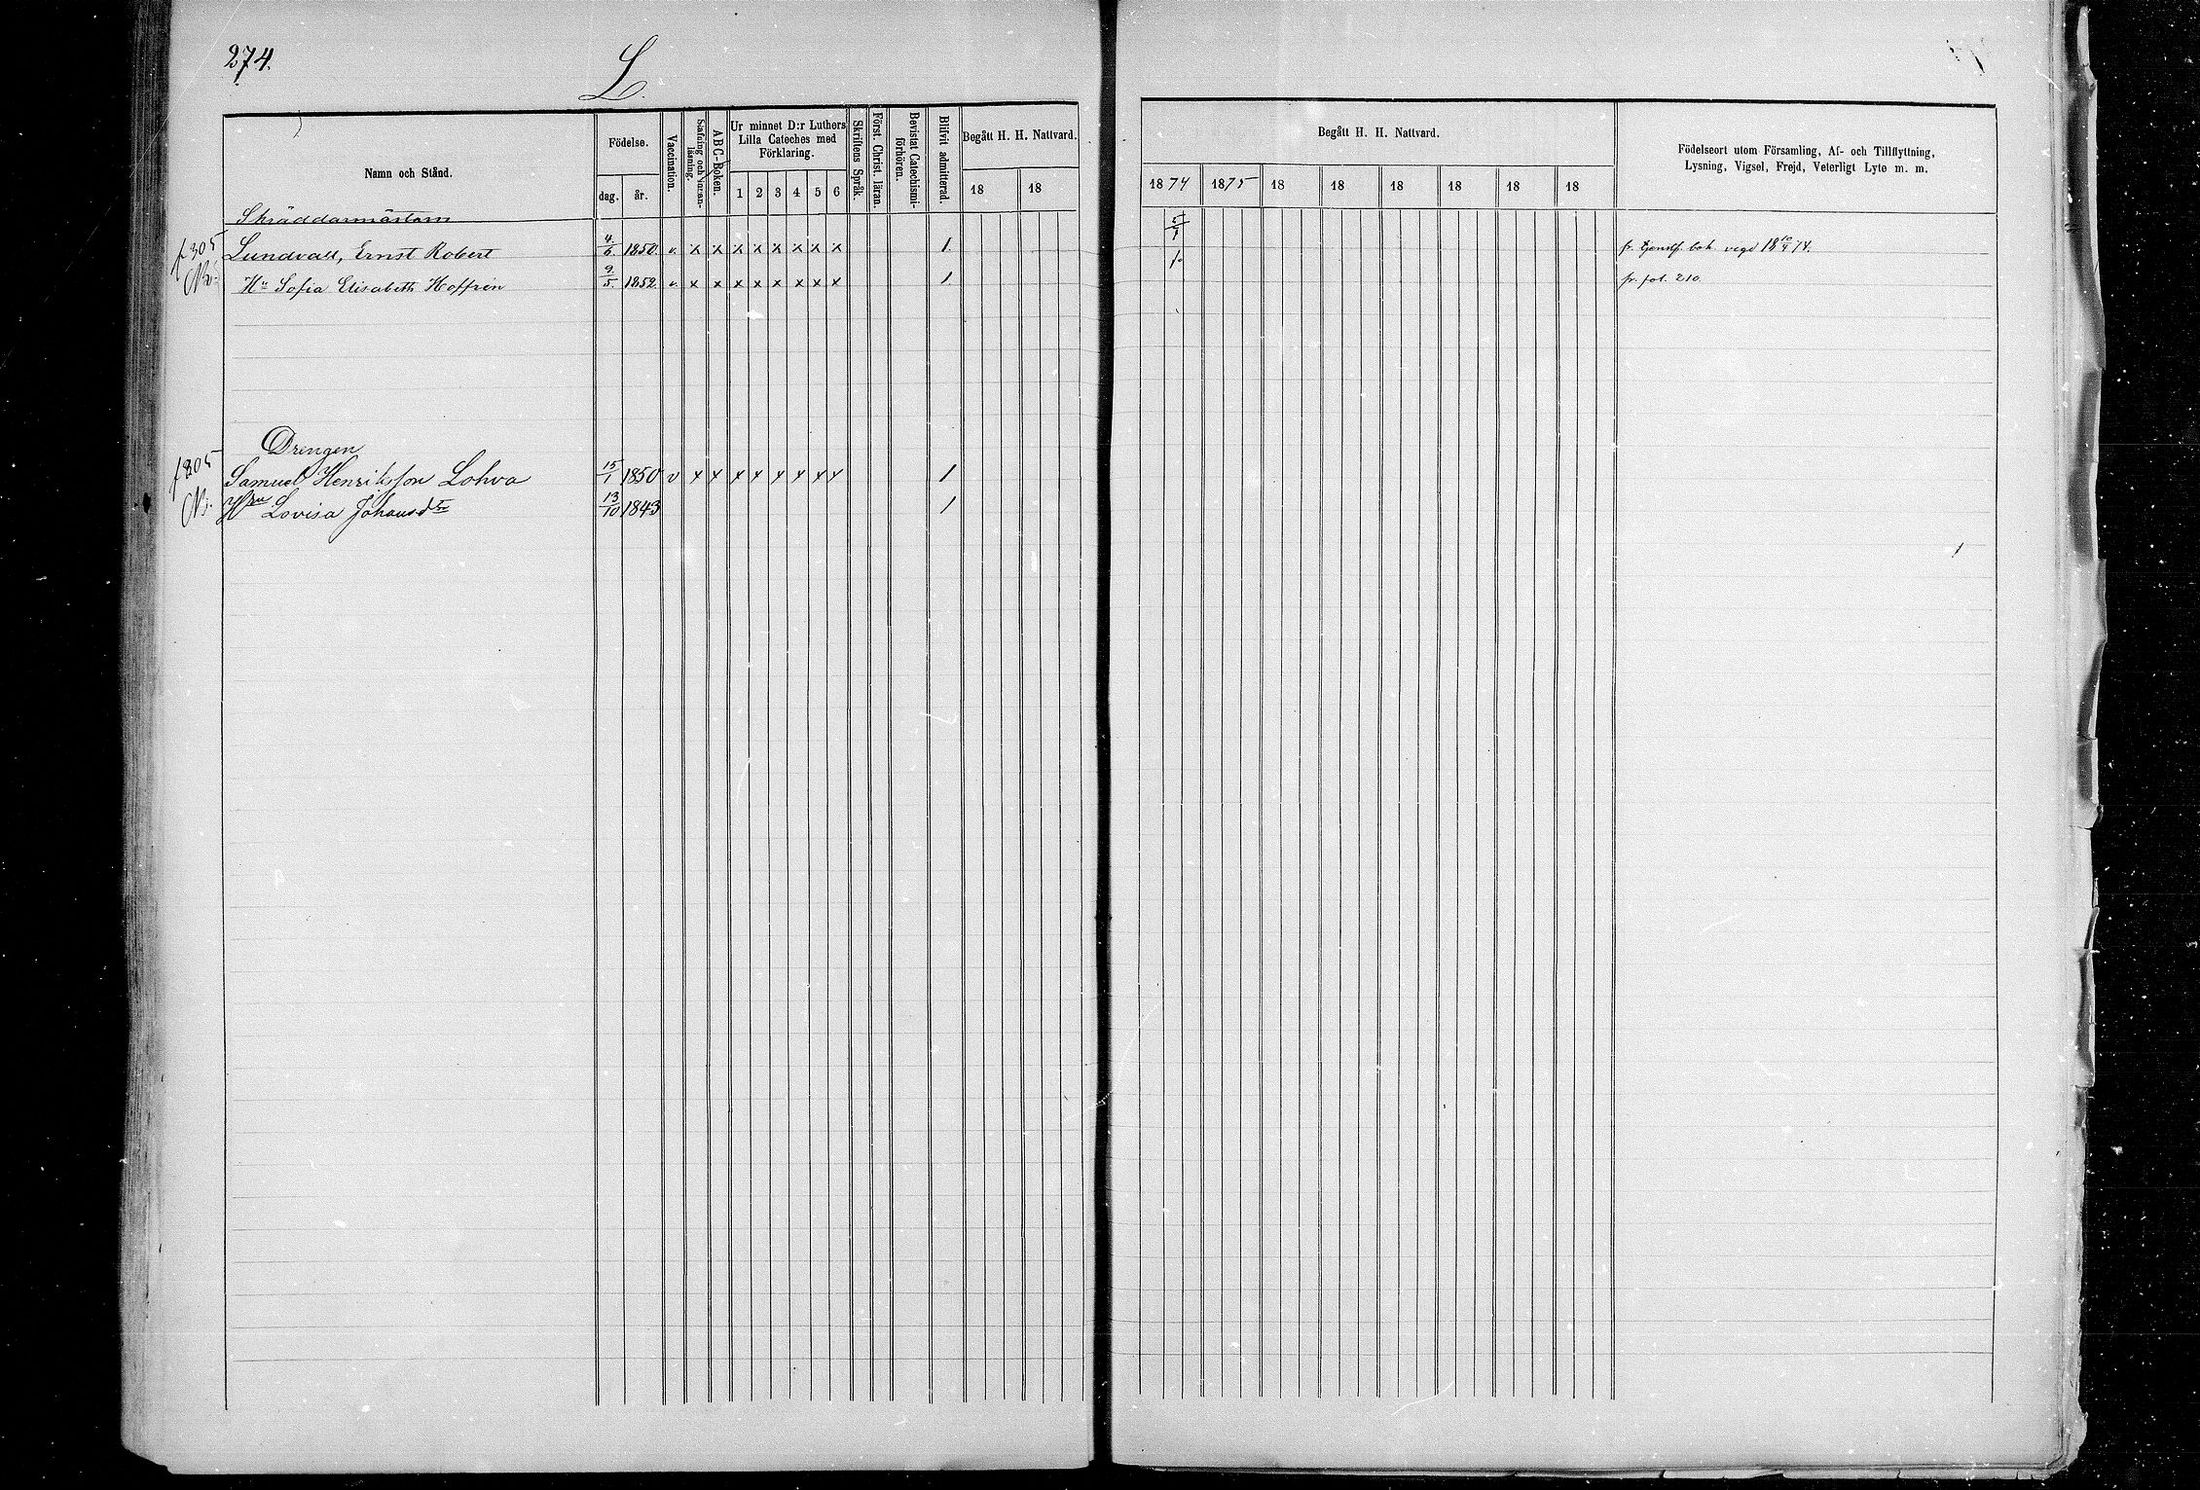 274.
L.
Namn och Stånd.
Födelse.
dag. år.
Vaccination.
ABC-Boken.
Ur minnet D:r Luthers
Lilla Cateches med
Förklaring.
1 2 3 4 5 6
Skriftens Språk.
Först. Christ. läran.
Bevistat Catechismi-
förhören.
Blifvit admitterad.
Begått H. H. Nattvard.
18 18
Begått H. H. Nattvard.
1874 1875 18 18 18 18 18 18
Födelseort utom Församling, Af- och Tillflyttning,
Lysning, Vigsel, Frejd, Veterligt Lyte m. m.
Skräddarmästarn
f 305 Lundvall, Ernst Robert 4/6 1850. v. x x x x x x x x 1. vigd 18 10/4 74.
Hu Sofia Elisabeth Hoffrén 9/5. 1852. v. x x x x x x x x 1. fr. fol. 210.
Drengen
f 305 Samuel Henriksson Lohva 15/1 1850 v x x x x x x x x 1
Hru Lovisa Johansdr 13/10 1843 1